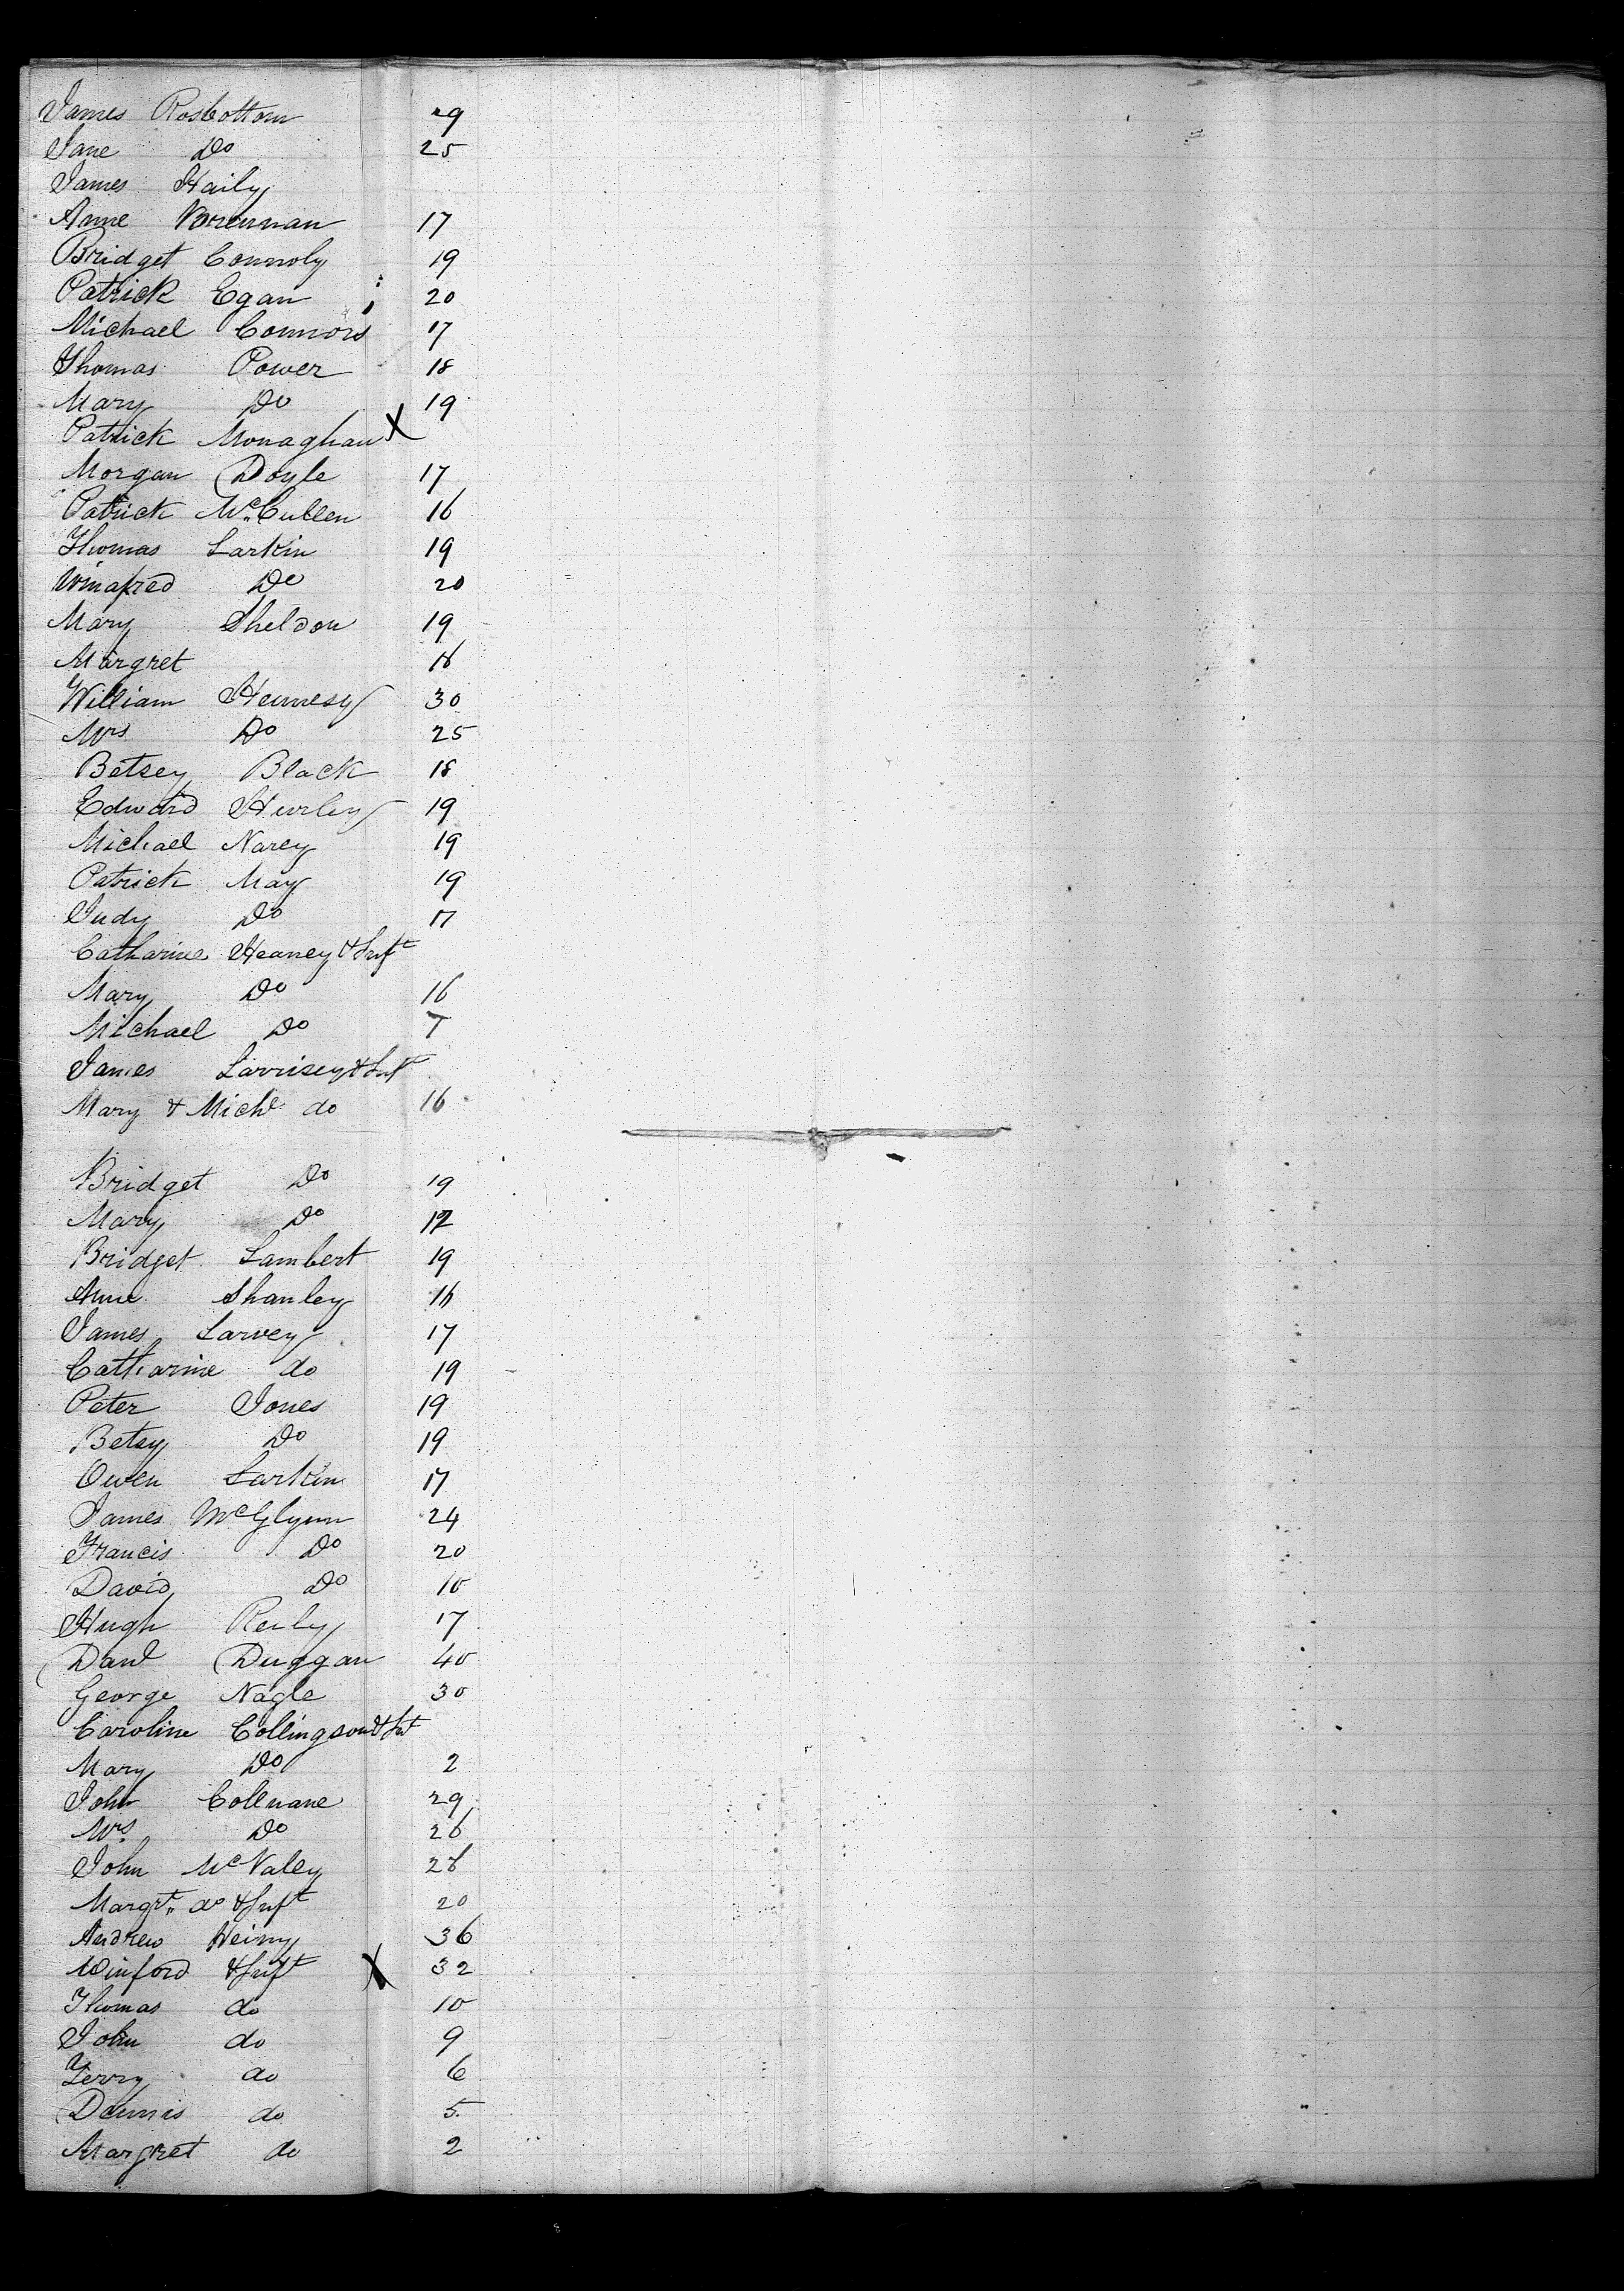 James Rosbottom 29
Jane Do 25
James Haily
Anne Brennan 17
Bridget Connoly 19
Patrick Egan 20
Michael Connors 17
Thomas Power 18
Mary Do 19
Patrick Monaghan X
Morgan Doyle 17
Patrick McCullen 16
Thomas Larkin 19
Winafred Do 20
Mary Sheldon 19
Margret 18
William Hennesy 30
Mrs Do 25
Betsey Black 18
Edward Hurley 19
Michael Narey 19
Patrick May 19
Judy Do 17
Catharine Heaney & Inft
Mary Do 16
Michael Do 7
James Larrisey & Inft
Mary & Michl do 16
Bridget Do 19
Mary Do 12
Bridget Lambert 19
Anne Shanley 16
James Larvey 17
Catharine do 19
Peter Jones 19
Betsy Do 19
Owen Larkin 17
James McGlynn 24
Francis Do 20
David Do 10
Hugh Reily 17
Danl Duggan 40
George Nagle 30
Caroline Collingson & Int
Mary Do 2
John Collnane 29
Mrs Do 26
John McValey 28
Margrt do & Inft 20
Andrew Heiny 36
Winford & Inft X 32
Thomas do 10
John do 9
Terry do 6
Dennis do 5
Margret do 2